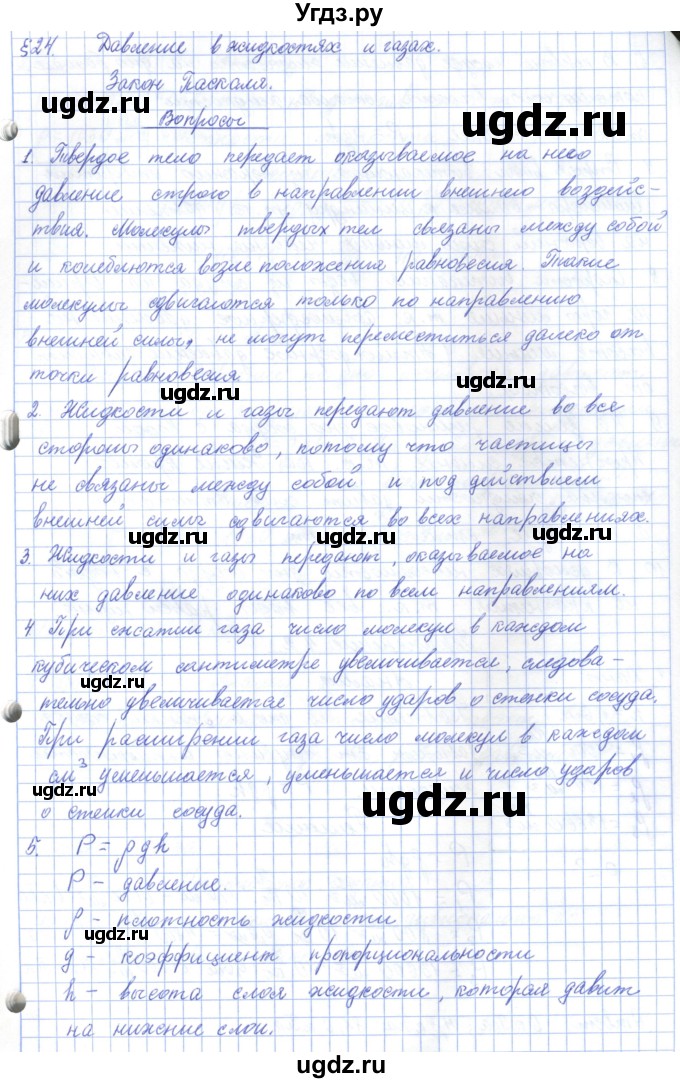 Угдз.ру
§24. Давление в жидкостях и газах.
Закон Паскаля.
ugdz.ru ugdz.ru
Вопросы
1. Твердое тело передает оказываемое на него
давление строго в направлении внешнего воздейс-
ugdz.ru
твия. Молекулы твердых тел связаны между собой
и колеблются возле положения равновесия. Такие
молекулы сдвигаются только по направлению
ugdz.ru
внешней силы, не могут переместиться далеко от
точки равновесия
ugdz.ru
2. Жидкости и газы передают давление во все
стороны одинаково, потому что частицы
не связаны между собой и под действием
внешней силы сдвигаются во всех направлениях.
ugdz.ru ugdz.ru
3. Жидкости и газы передают, оказываемое на
них давление одинаково по всем направлениям.
4 При сжатии газа число молекул в каждом
кубическом сантиметре увеличивается, следова-
ugdz.ru
тельно увеличивается число ударов о стенки сосуда.
При расширении газа число молекул в каждом
см³ уменьшается, уменьшается и число ударов
ugdz.ru ugdz.ru
о стенки сосуда.
5. P = ρgh
P - давление.
ρ - плотность жидкости
g - коэффициент пропорциональности
h - высота слоя жидкости, которая давит
ugdz.ru
на нижние слои.
ugdz.ru